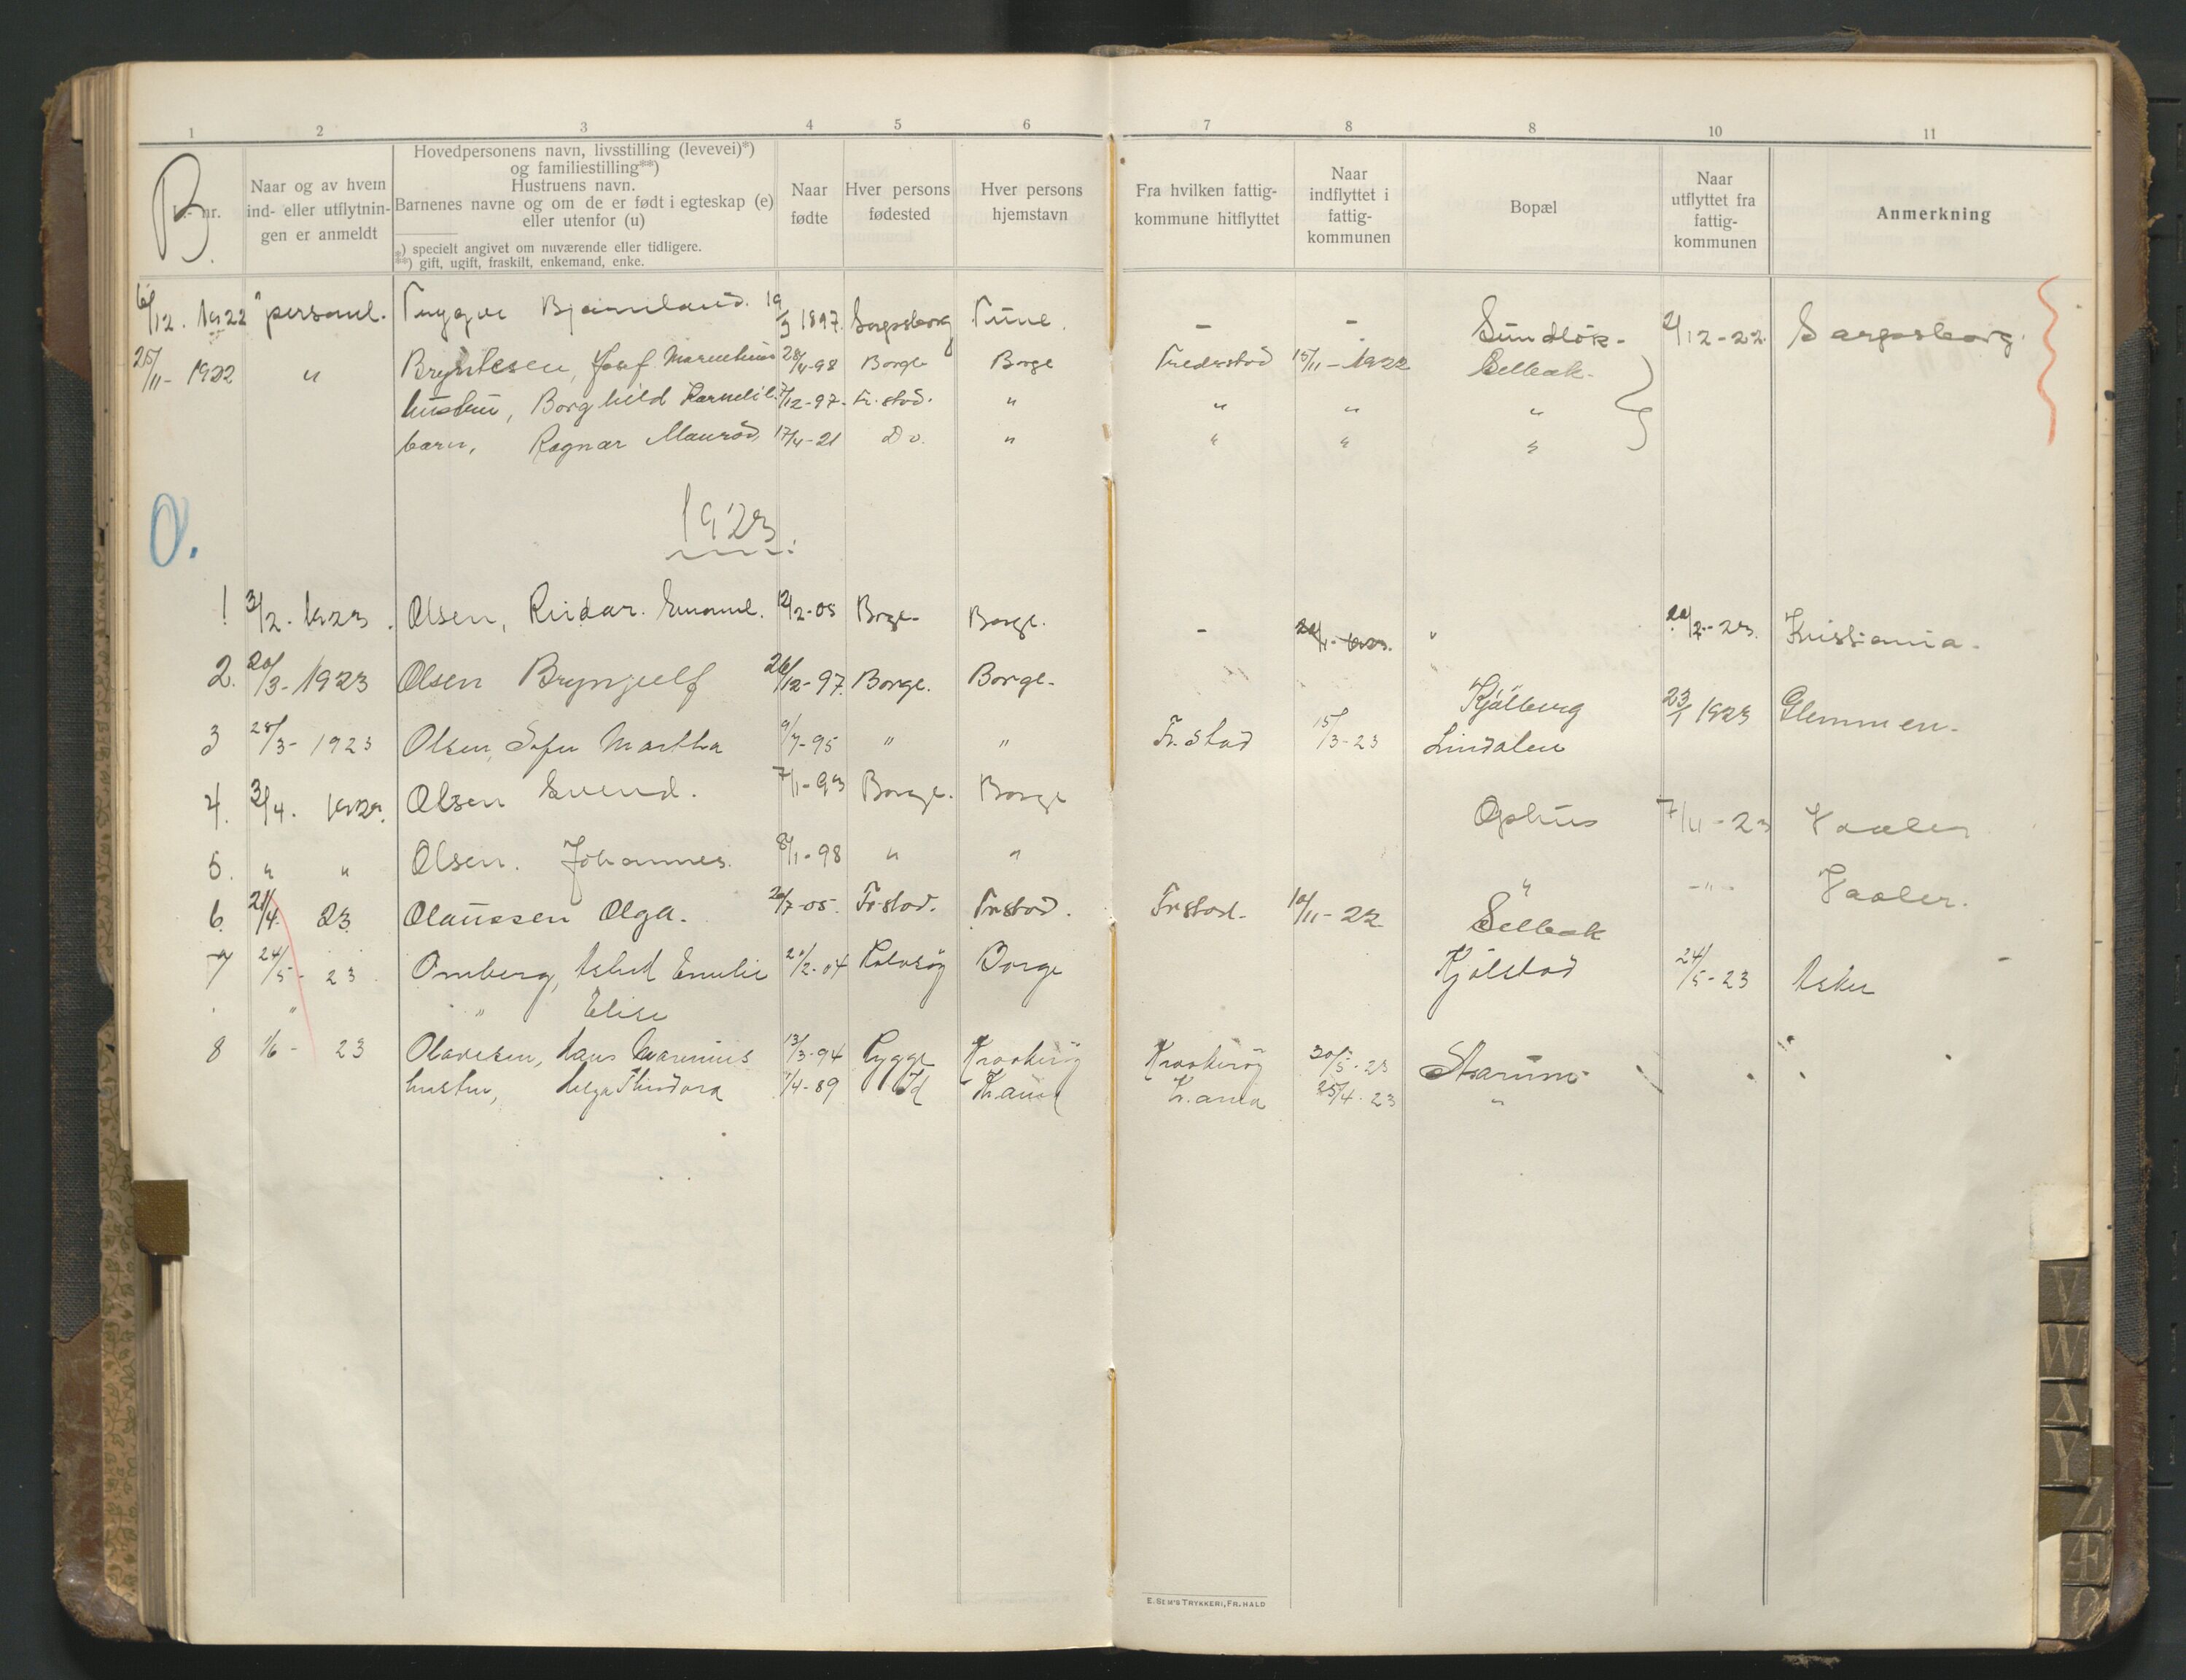 1 2 3 4 5 6 7 8 8 10 11
B. nr.
Naar og av hvem ind- eller utflytnin-gen er anmeldt
Hovedpersonens navn, livsstilling (levevei)*)
og familiestilling**)
Hustruens navn.
Barnenes navne og om de er født i egteskap (e)
eller utenfor (u)
*) specielt angivet om nuværende eller tidligere.
**) gift, ugift, fraskilt, enkemand, enke.
Naar fødte
Hver persons fødested
Hver persons hjemstavn
Fra hvilken fattig-kommune hitflyttet
Naar indflyttet i fattig-kommunen
Bopæl
Naar utflyttet fra fattig-kommunen
Anmerkning
6/12. 1922 personl. Trygve Bjørnland. 19/3 1897. Sarpsborg Tune. - - Sundløk- 2/12-22. Sarpsborg.
25/11- 1922 " Bryntesen, Josef 28/11-98 Borge Borge Fredrstad 15/11-1922 Selbak.
hustru, Borghild 7/12-97. Fr.stad. " " " "
barn, Ragnar 17/4-21 Do. " " " "
O.
1923.
1 3/2. 1923. Olsen, Reidar. Emanuel. 12/2-05 Borge- Borge. - " 20/2-23. Kristiania-
2. 20/3-1923 Olsen Brynjulf 26/12-97. Borge. Borge- Kjølberg 23/1 1923 Glemmen-
3 28/3- 1923 Olsen, Martha 9/7-95 " " Fr.stad 15/3-23 Lindalen
4. 3/4. 1923. Olsen Svend. 7/1-93 Borge. Borge Ophus 7/4-23 Vaaler
5. " " Olsen. Johannes. 8/1-98 " " " -"- Vaaler.
6. 21/4. 23. Olaussen Olga. 20/7-05. Fr.stad. Frstad. Frstad. 10/11-22 Selbak
7 24/5- 23. Omberg, Emilie 20/2-04 Rolvsøy Borge Kjølstad 24/5-23 Asker
" " Elise
8 1/6- 23 Olavesen, Hans Marinius 13/3-94 Rygge Kraakerøy Kraakerøy 30/5-23
hustru, Helga Thindora 1/4-89 Id Kr.ania 25/4.23 "
E. SEM'S TRYKKERI, FR.HALD
V
W
X
Y
Z
Æ
Ø